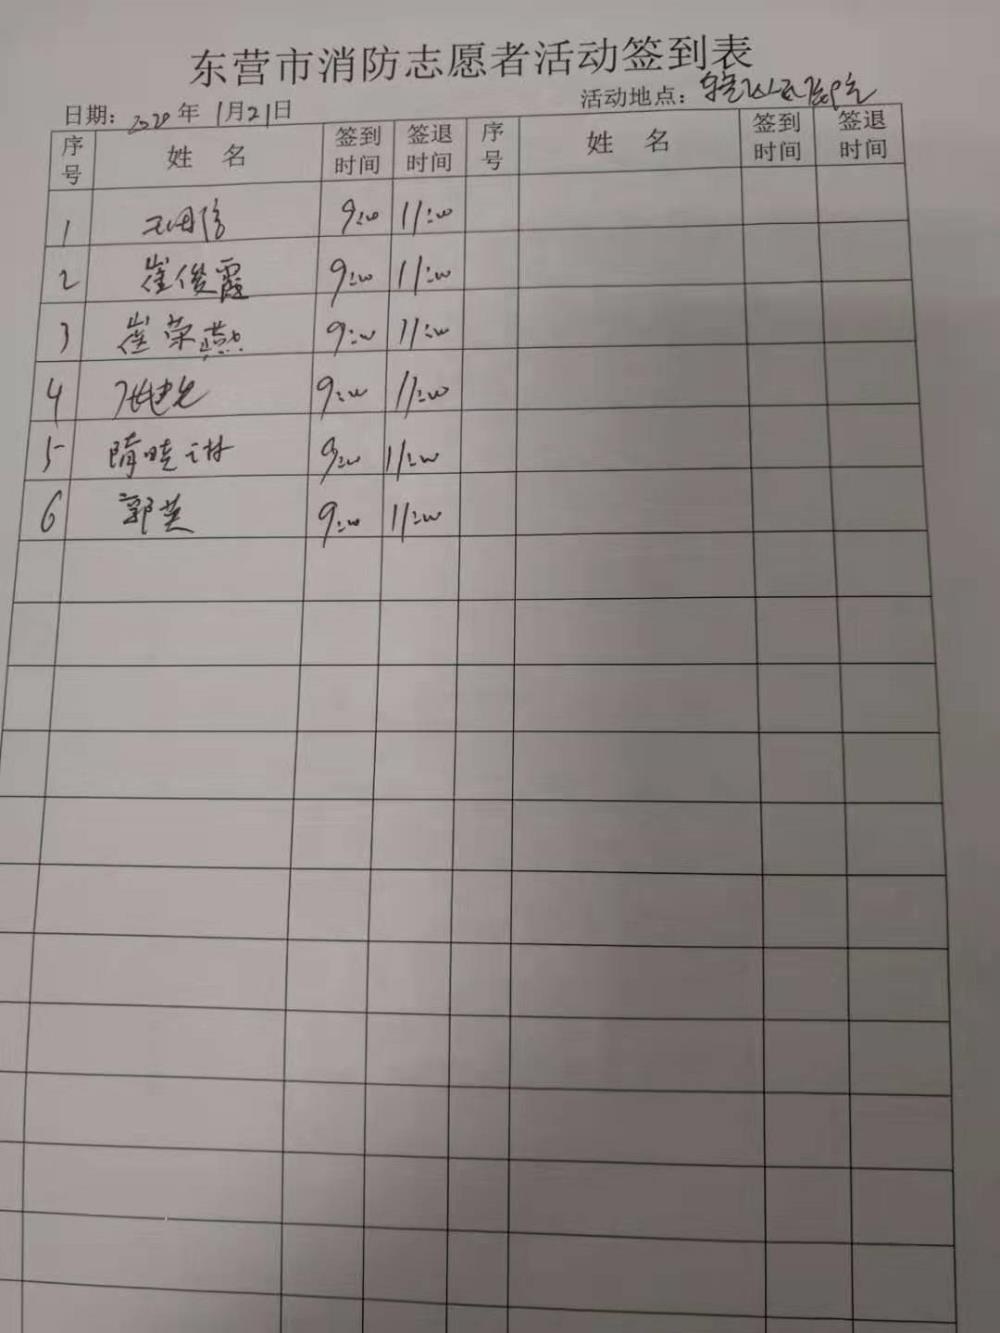 东营市消防志愿者活动签到表
日期: 2020年 1月21日 活动地点:
序号 姓 名 签到时间 签退时间 序号 姓 名 签到时间 签退时间
1 9:00 11:00
2 崔俊霞 9:00 11:00
3 崔荣燕 9:00 11:00
4 张建光 9:00 11:00
5 隋晓琳 9:00 11:00
6 郭英 9:00 11:00